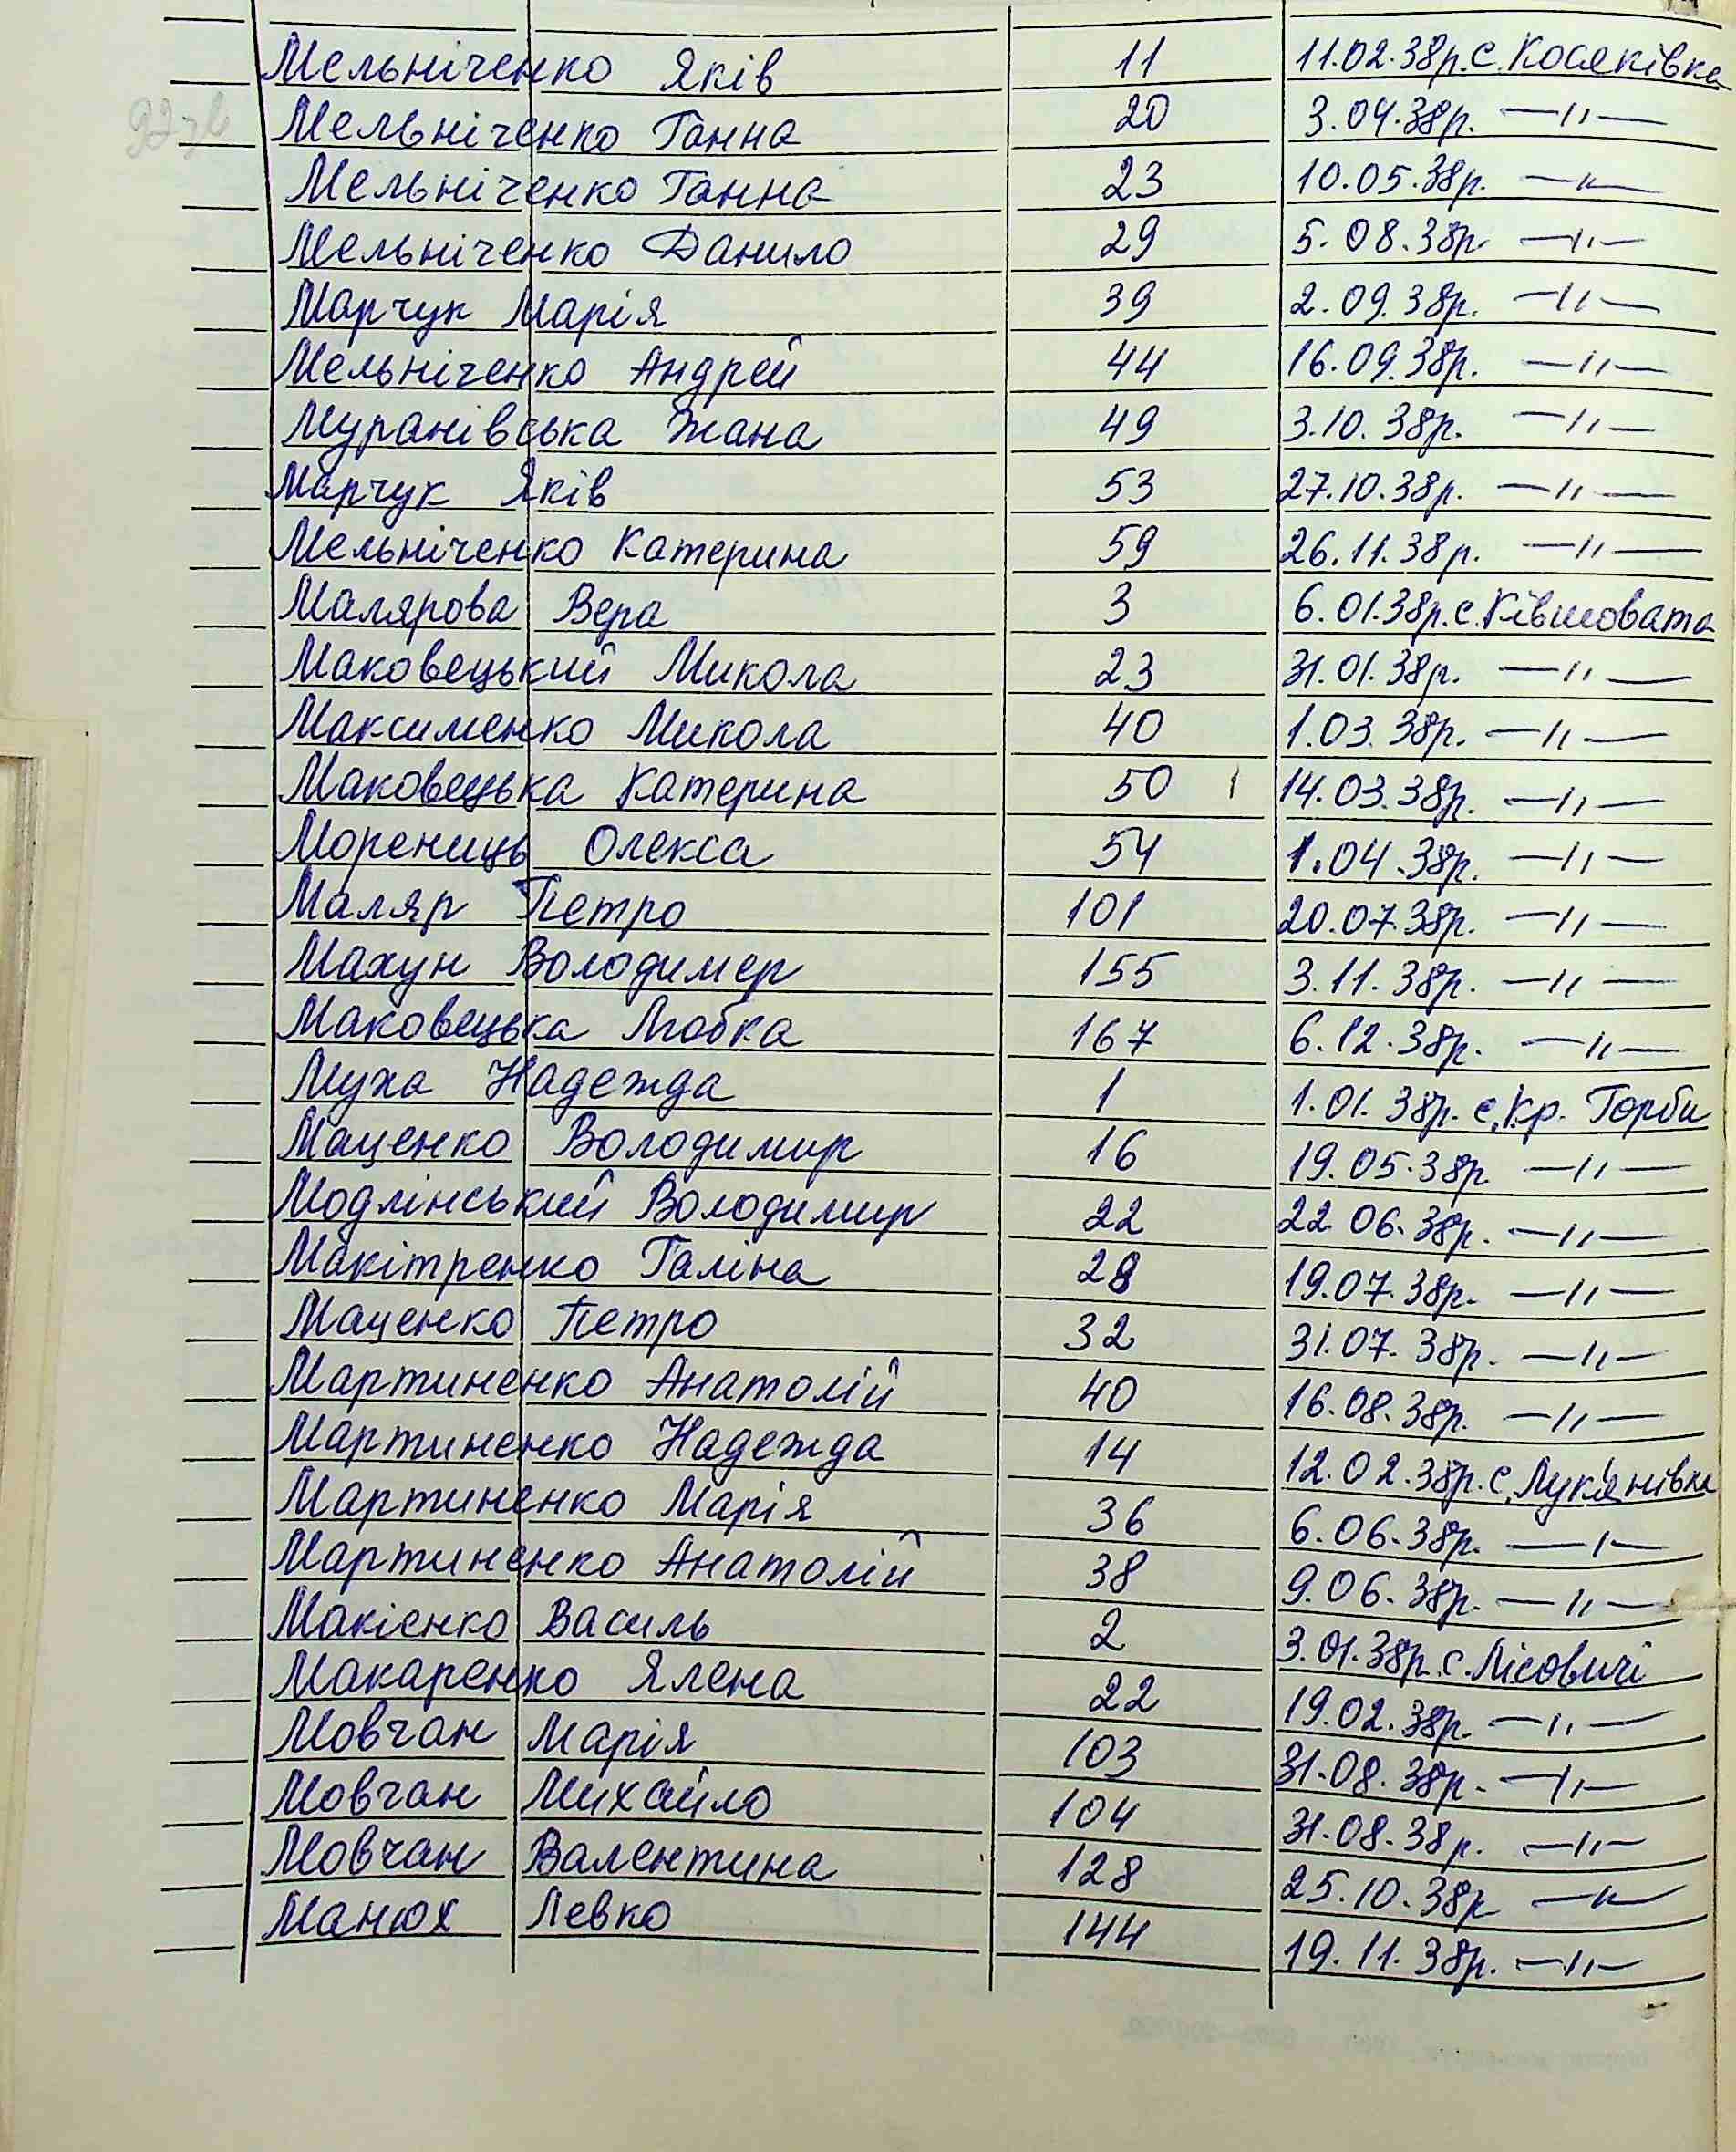 Мельніченко Яків 11 11.02.38р. с. Косяківка
Мельніченко Ганна 20 3.04.38р. —//—
Мельніченко Ганна 23 10.05.38р. —//—
Мельніченко Данило 29 5.08.38р. —//—
Марчук Марія 39 2.09.38р. —//—
Мельніченко Андрей 44 16.09.38р. —//—
Муранівська Жана 49 3.10.38р. —//—
Марчук Яків 53 27.10.38р. —//—
Мельніченко Катерина 59 26.11.38р. —//—
Малярова Вера 3 6.01.38р. с. Ківшовата
Маковецький Микола 23 31.01.38р. —//—
Максименко Микола 40 1.03.38р. —//—
Маковецька Катерина 50 14.03.38р. —//—
Морениць Олекса 54 1.04.38р. —//—
Маляр Петро 101 20.07.38р. —//—
Махун Володимер 155 3.11.38р. —//—
Маковецька Любка 167 6.12.38р. —//—
Муха Надежда 1 1.01.38р. с. Кр. Горби
Маценко Володимир 16 19.05.38р —//—
Модлінський Володимир 22 22 06.38р. —//—
Макітренко Галіна 28 19.07.38р. —//—
Маценко Петро 32 31.07.38р. —//—
Мартиненко Анатолій 40 16.08.38р. —//—
Мартиненко Надежда 14 12.02.38р. с. Лук'янівка
Мартиненко Марія 36 6.06.38р. —//—
Мартиненко Анатолій 38 9.06.38р. —//—
Макієнко Василь 2 3.01.38р. с. Лісовичі
Макаренко Ялена 22 19.02.38р. —//—
Мовчан Марія 103 31.08.38р. —//—
Мовчан Михайло 104 31.08.38р. —//—
Мовчан Валентина 128 25.10.38р —//—
Манюх Левко 144 19.11.38р. —//—